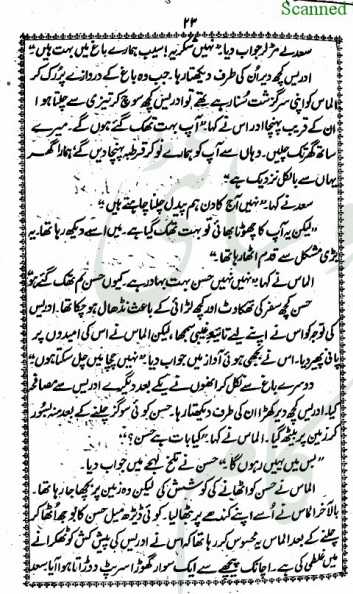 Scanned
۲۳
سعد نے مڑ کر جواب دیا۔ "نہیں شکریہ! سیب ہمارے باغ میں بہت ہیں"
ادریس کچھ دیر اُن کی طرف دیکھتا رہا۔ جب وہ باغ کے دروازے پر رُک کر
الماس کو اپنی سرگزشت سُنا رہے تھے تو ادریس کچھ سوچ کر تیزی سے چلتا ہوا
ان کے قریب پہنچا اور اس نے کہا "آپ بہت تھک گئے ہوں گے۔ میرے
ساتھ گھر تک چلیں۔ وہاں سے آپ کو ہمارے نوکر قرطبہ پہنچا دیں گے؛ ہمارا گھر
یہاں سے بالکل نزدیک ہے"
سعد نے کہا "نہیں آج کا دن ہم پیدل چلنا چاہتے ہیں"
"لیکن یہ آپ کا چھوٹا بھائی تو بہت تھک گیا ہے۔ میں اسے دیکھ رہا تھا۔ یہ
بڑی مشکل سے قدم اٹھا رہا تھا۔
الماس نے کہا "نہیں نہیں حسن بہت بہادر ہے کیوں حسن تم تھک گئے ہو"
حسن کچھ سفر کی تھکاوٹ اور کچھ لڑائی کے باعث نڈھال ہو چکا تھا۔ ادریس
کی توجہ کو اس نے اپنے لیے تائید غیبی سمجھا، لیکن الماس نے اس کی امیدوں پر
پانی پھیر دیا۔ اس نے بجھی ہوئی آواز میں جواب دیا۔ "نہیں چچا میں چل سکتا ہوں"
دوسرے باغ سے نکل کر انھوں نے یکے بعد دیگرے ادریس سے مصافحہ
کیا۔ ادریس کچھ دیر کھڑا ان کی طرف دیکھتا رہا۔ حسن کوئی سو گز چلنے کے بعد منہ بسور
کر زمین پر بیٹھ گیا۔ الماس نے کہا "کیا بات ہے حسن؟"
"بس میں یہیں رہوں گا" حسن نے تلخ لہجے میں جواب دیا۔
الماس نے حسن کو اٹھانے کی کوشش کی لیکن وہ زمین پر بچھا جا رہا تھا۔
بالآخر الماس نے اُسے اپنے کندھے پر بٹھا لیا۔ کوئی ڈیڑھ میل حسن کا بوجھ اٹھا کر
چلنے کے بعد الماس یہ محسوس کر رہا تھا کہ اس نے ادریس کی پیش کش کو ٹھکرانے
میں غلطی کی ہے۔ اچانک پیچھے سے ایک سوار گھوڑا سرپٹ دوڑاتا ہوا آیا۔ سعد